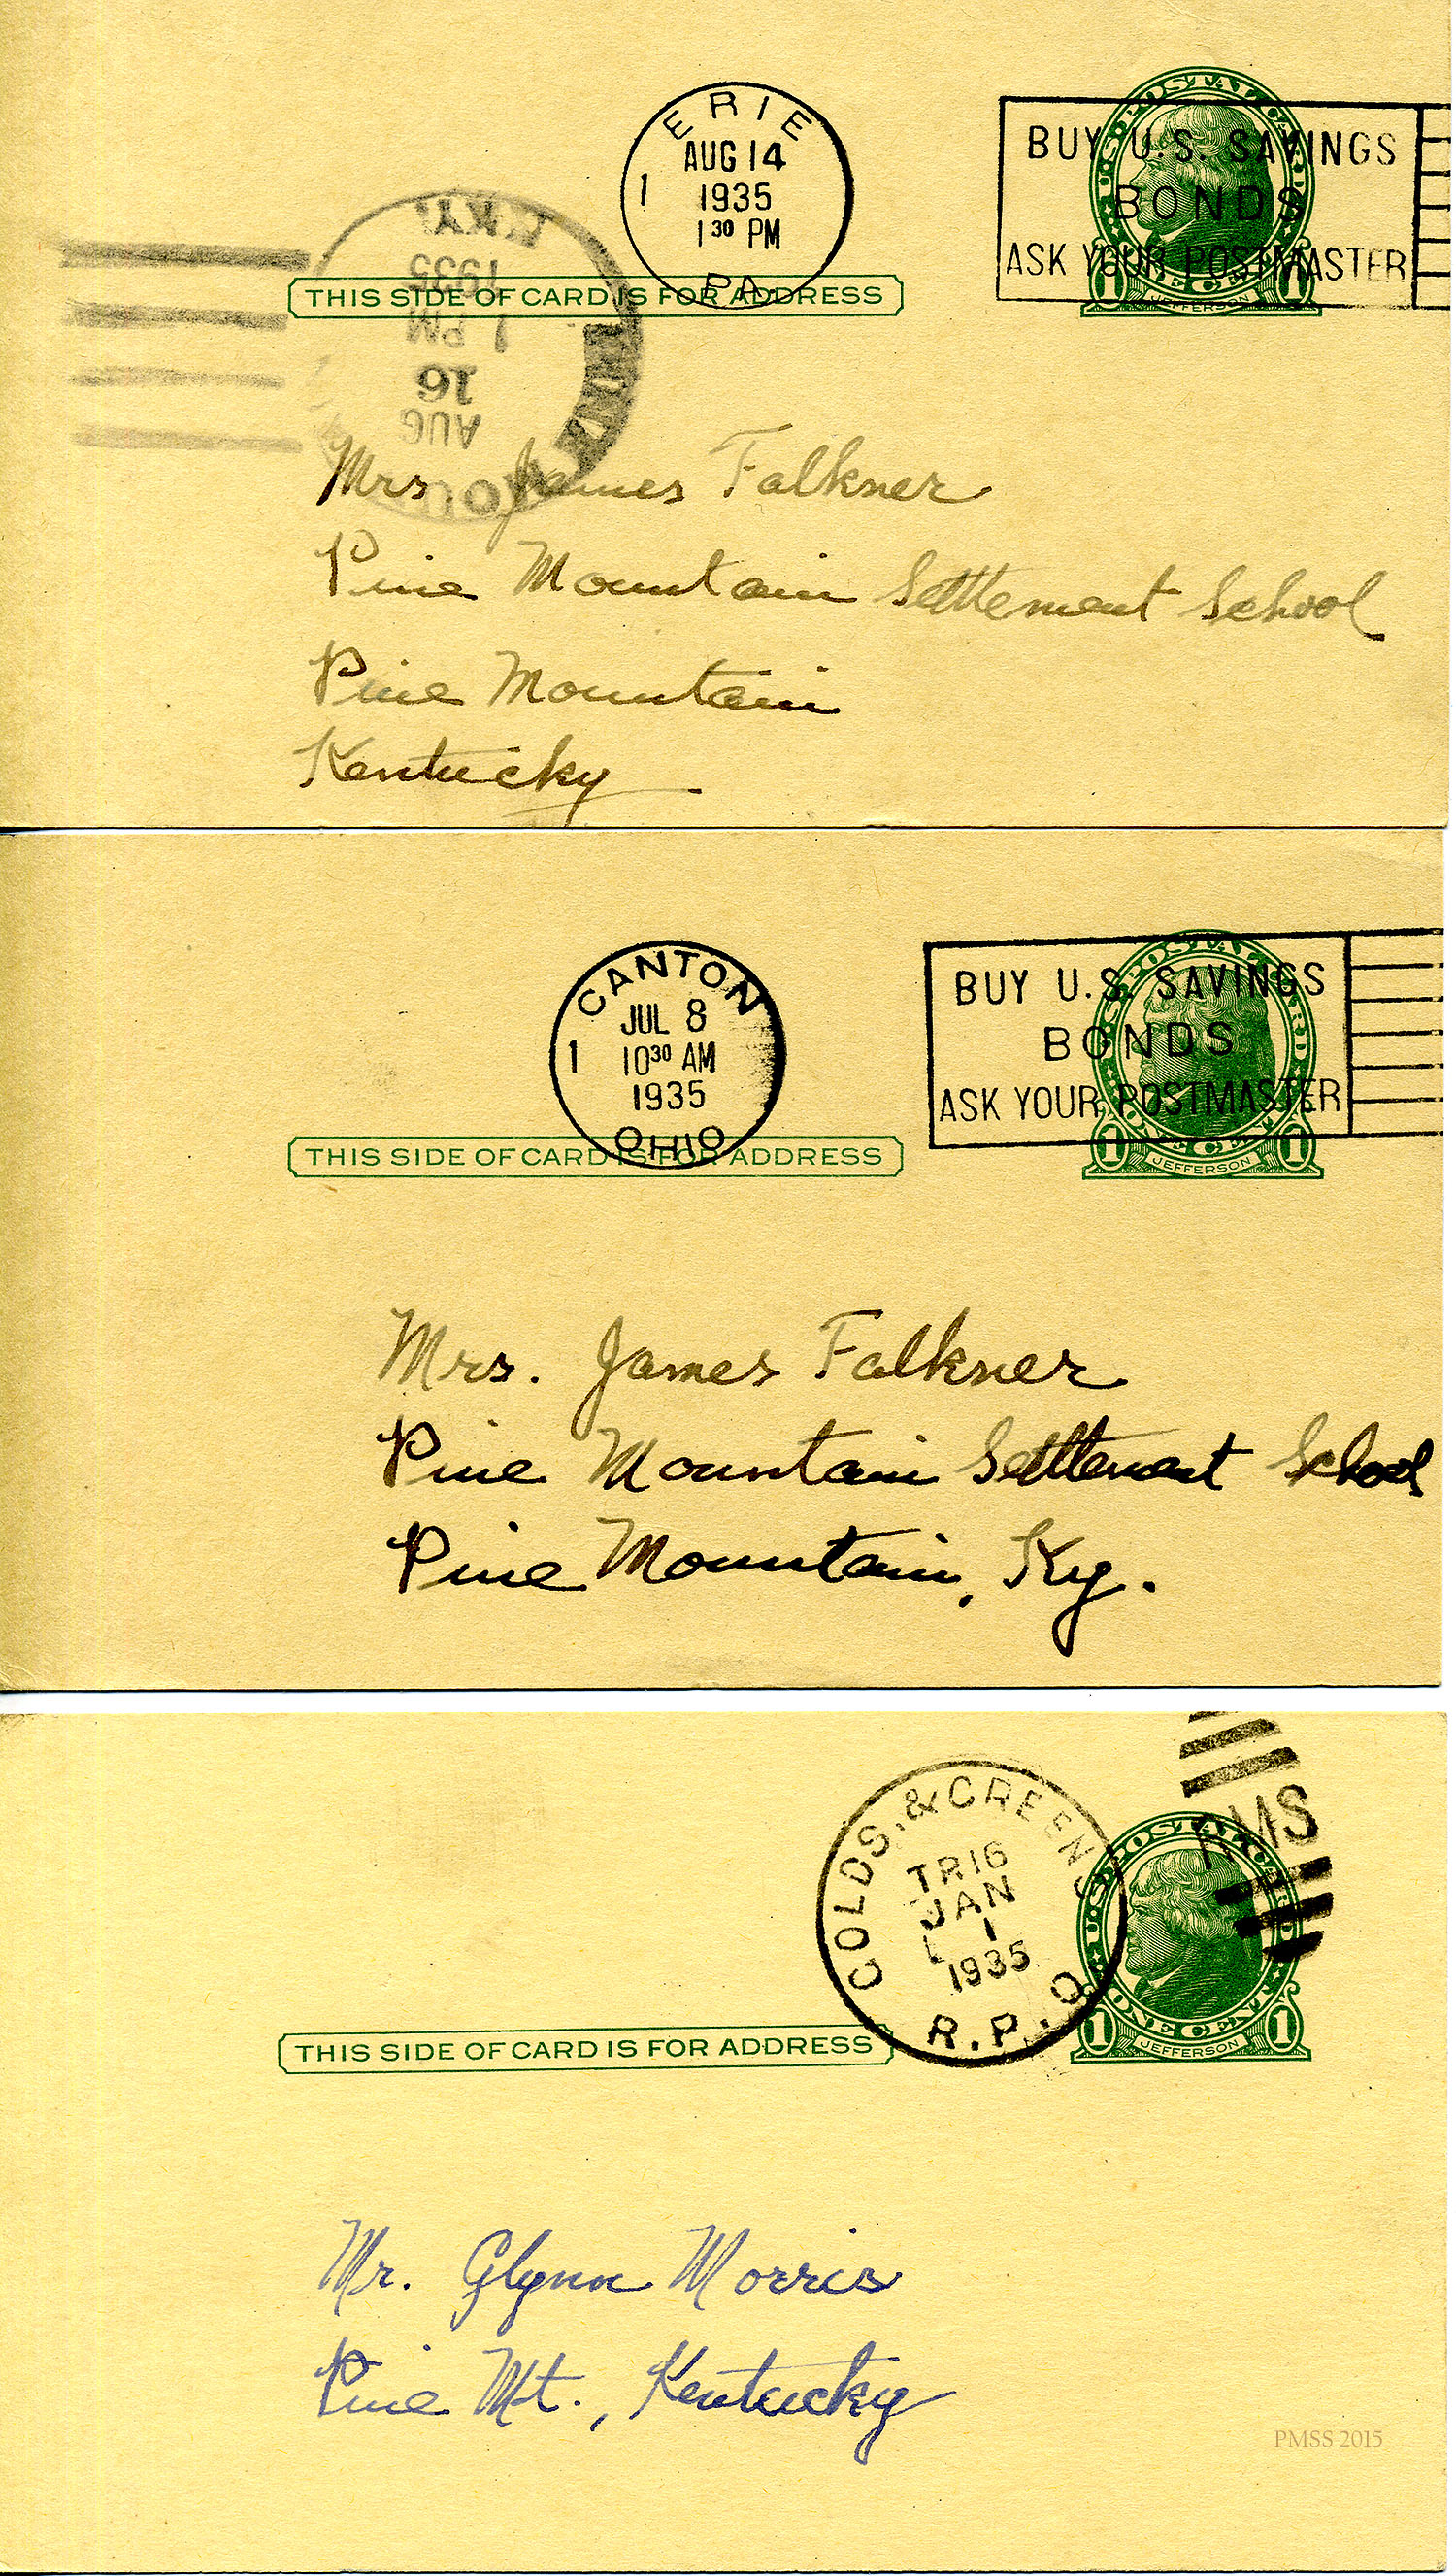 ERIE
AUG 14
1 1935
1 30 PM
PA.
U.S. POSTAL CARD
BUY U.S. SAVINGS
BONDS
ASK YOUR POSTMASTER
1 ONE CENT 1
JEFFERSON
KY.
1935
1 PM
16
AUG
THIS SIDE OF CARD IS FOR ADDRESS
Mrs James Falkner
Pine Mountain Settlement School
Pine Mountain
Kentucky.
CANTON
JUL 8
1 10 30 AM
1935
OHIO
U.S. POSTAL CARD
BUY U.S. SAVINGS
BONDS
ASK YOUR POSTMASTER
1 ONE CENT 1
JEFFERSON
THIS SIDE OF CARD IS FOR ADDRESS
Mrs. James Falkner
Pine Mountain Settlement School
Pine Mountain, Ky.
GOLDS. & GREENS
TR16
JAN
1
1935
R.P.O.
RMS
U.S. POSTAL CARD
1 ONE CENT 1
JEFFERSON
THIS SIDE OF CARD IS FOR ADDRESS
Mr. Glynn Morris
Pine Mt., Kentucky
PMSS 2015